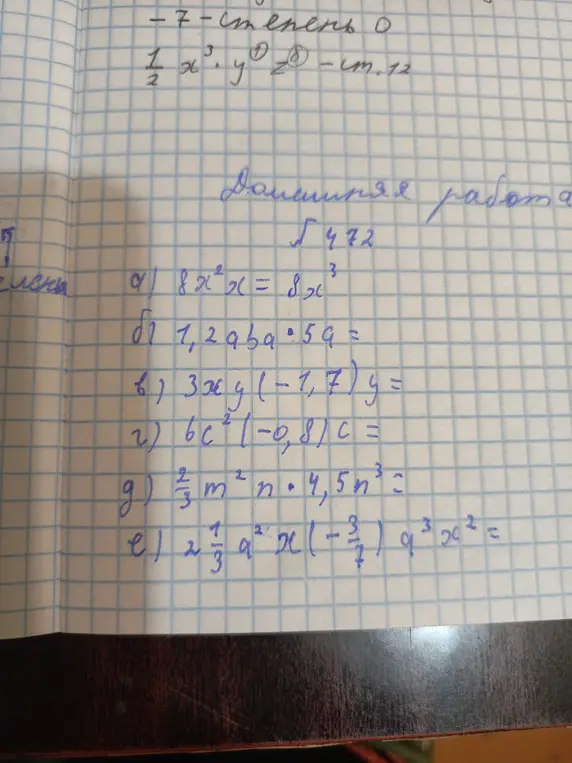 -7 - степень 0
1/2 x³ · y¹ z⁸ - ст. 12
Домашняя работа
№ 472
а) 8x²x = 8x³
б) 1,2aba · 5a =
в) 3xy(-1,7)y =
г) 6c²(-0,8)c =
д) 2/3 m²n · 4,5n³ =
е) 2 1/3 a²x(-3/7) a³x² =